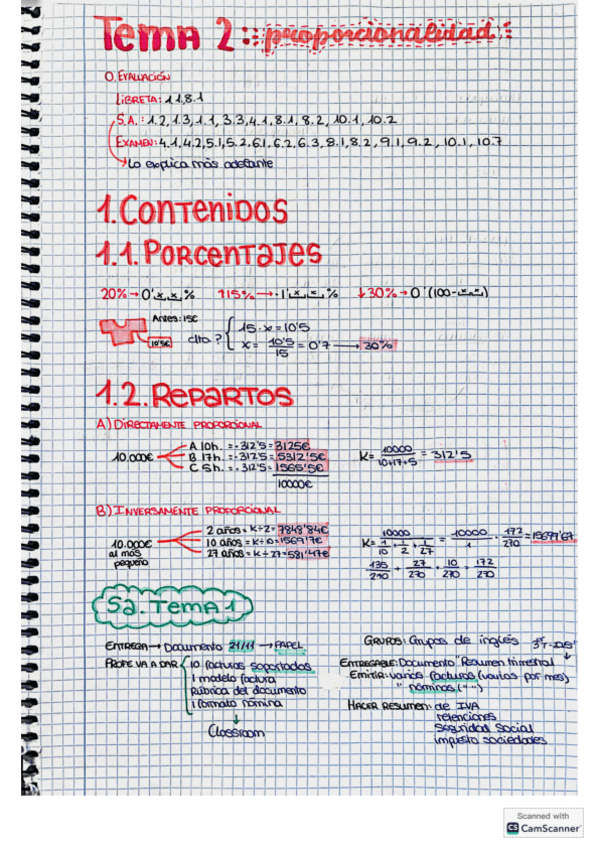 Tema 2: proporcionalidad
0. Evaluación
Libreta: 1.1, 8.1
S.A.: 1.2, 1.3, 1.1, 3.3, 4.1, 8.1, 8.2, 10.1, 10.2
Examen: 4.1, 4.2, 5.1, 5.2, 6.1, 6.2, 6.3, 8.1, 8.2, 9.1, 9.2, 10.1, 10.7
Lo explica más adelante
1. Contenidos
1.1. Porcentajes
20% → 0'x x % 115% → 1'x x % ↓30% → 0'(100-x x)
Antes: 15€
10'5€
dto?
15·x=10'5
x= 10'5/15 = 0'7 → 30%
1.2. Repartos
A) Directamente proporcional
10.000€
A 10h. = ·312'5 = 3125€
B 17h. = ·312'5 = 5312'5€
C 5h. = ·312'5 = 1565'5€
10000€
K= 10000/10+17+5 = 312'5
B) Inversamente proporcional
10.000€
al más
pequeño
2 años = K÷2 = 7848'84€
10 años = K÷10 = 1569'7€
27 años = K÷27 = 581'47€
K= 10000 / 1/10 + 1/2 + 1/27 = 10000/1 · 172/270 = 15697'67
135/270 + 27/270 + 10/270 = 172/270
Sa. Tema 1
Entrega → Documento 21/11 → PAPEL
Profe va a dar
10 facturas soportadas
1 modelo factura
Rúbrica del documento
1 formato nómina
Classroom
Grupos: Grupos de inglés
Entregable: Documento "Resumen trimestral
Emitir: varias facturas (varias por mes)
" nóminas (" ")
Hacer resumen: de IVA
retenciones
Seguridad Social
impuesto sociedades
Scanned with
CS CamScanner